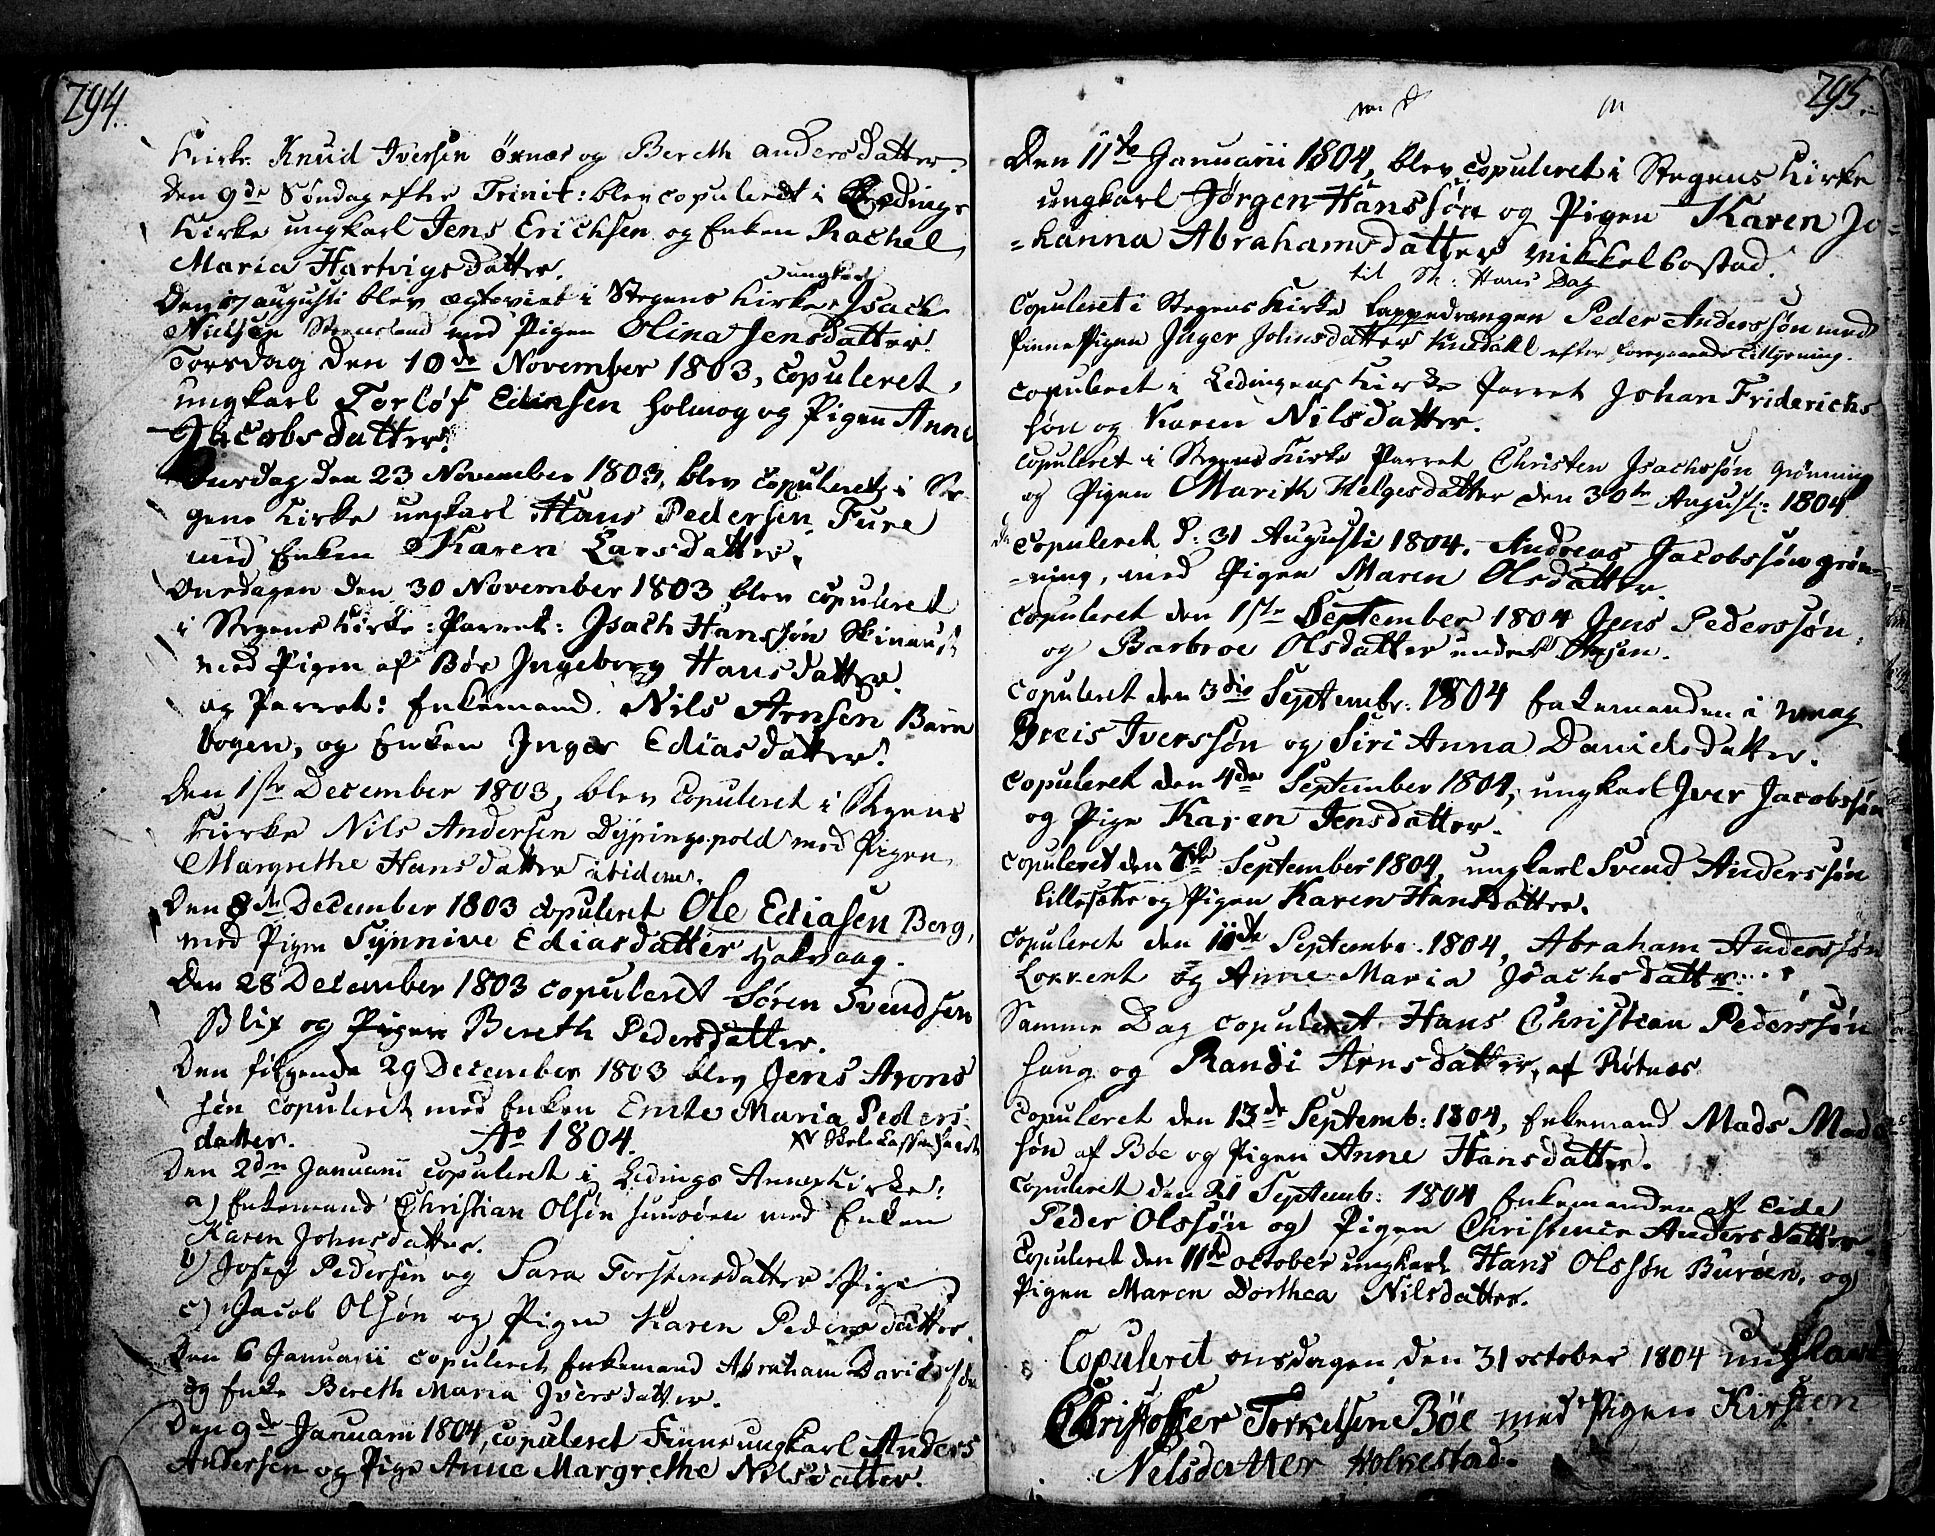 294.
Kirke Knud Iversen Øxnæs og Bereth Andersdatter.
Den 9de Søndag efter Trinit: blev copuleret i Lødings
Kirke ungkarl Jens Erichsen og Enken Rachel
Maria Hartvigsdatter.
ungkarl
Den 17 Augusti blev ægteviet i Stegens Kirke Isach
Nielsen med Pigen Olina Jensdatter.
Torsdag den 10de November 1803, copuleret,
ungkarl Torløf Ediasen Holmog og Pigen Anne
Jacobsdatter.
Onsdag den 23 November 1803, blev copuleret i Ste-
gens Kirke ungkarl Hans Pedersen Fure
med Enken Karen Larsdatter.
Onsdagen den 30 November 1803 blev copuleret
i Stegens Kirke: Parret: Isach Hanssøn
med Pigen af Bøe Ingeborg Hansdatter.
og Parret: Enkemand Nils Arnsen Barn
vogen, og Enken Inger Ediasdatter.
Den 1ste December 1803, blev copuleret i Stegens
Kirke Nils Andersen Dypingspold med Pigen
Margrethe Hansdatter ibidem.
Den 8de December 1803 copuleret Ole Ediasen Berg,
med Pigen Synnive Ediasdatter Haknaag.
Den 28 December 1803 copuleret Søren Svendsen
Blix og Pigen Bereth Pedersdatter.
Den følgende 29 December 1803 blev Jens Arons
søn copuleret med Enken Emte Maria Peders
datter. Ao 1804.
Den 2den Januarii copuleret i Lødings Annex Kirke:
a) Enkemand Christian Olsøn med Enken
Karen Johnsdatter.
b) Josep Pedersen og Sara Torstensdatter Pige
c) Jacob Olsøn og Pigen Karen Pedersdatter.
Den 6 Januarii copuleret Enkemand Abraham Davidssøn
og Enke Bereth Maria Iversdatter.
Den 9de Januarii 1804, copuleret Finneungkarl Anders
Andersen og Pige Anne Margrethe Nilsdatter.
295.
Den 11te Januarii 1804, blev copuleret i Stegens Kirke
ungkarl Jørgen Hanssøn og Pigen Karen Jo-
-hanna Abrahamsdatter Mikkelbostad.
til St: Hans Dag
Copuleret i Stegens Kirke Lappedrengen Peder Anderssøn med
Finne Pigen Inger Johnsdatter efter foregaaende Tillysning.
copuleret i Lødingens Kirke Parret Johan Friderichs
søn og Karen Nilsdatter.
Copuleret i Stegens Kirke Parret Christen Isachssøn Grønning
og Pigen Marith Helgesdatter den 30te August: 1804
Copuleret d: 31 Augusti 1804. Andreas Jacobssøn Grøn-
-ning, med Pigen Maren Olsdatter.
Copuleret den 1ste September 1804 Jens Pederssøn
og Barbroe Olsdatter
Copuleret den 3die Septembr: 1804 Enkemanden i
Breis Iverssøn og Siri Anna Danielsdatter.
Copuleret den 4de September 1804, ungkarl Iver Jacobssøn
og Pige Karen Jensdatter.
Copuleret den 7de September 1804, ungkarl Svend Anderssøn
Lillesætre og Pigen Karen Hansdatter.
Copuleret den 11te Septembr. 1804, Abraham Anderssøn
og Anne Maria Isachsdatter.
Samme Dag copuleret Hans Christian Pederssøn
Haug og Randi Arnsdatter, af Røtnæs
Copuleret den 13de Septemb: 1804, Enkemand Mads Mads
søn af Bøe og Pigen Anne Hansdatter.
Copuleret den 21 Septemb: 1804 Enkemanden af Eide
Peder Olssøn og Pigen Christence Andersdatter
Copuleret den 11te October ungkarl Hans Olssøn Burøen, og
Pigen Maren Dorthea Nilsdatter.
Copuleret onsdagen den 31 october 1804 ungkarl
Christoffer Torkelsen Bøe med Pigen Kirsten
Nelsdatter Holkestad.